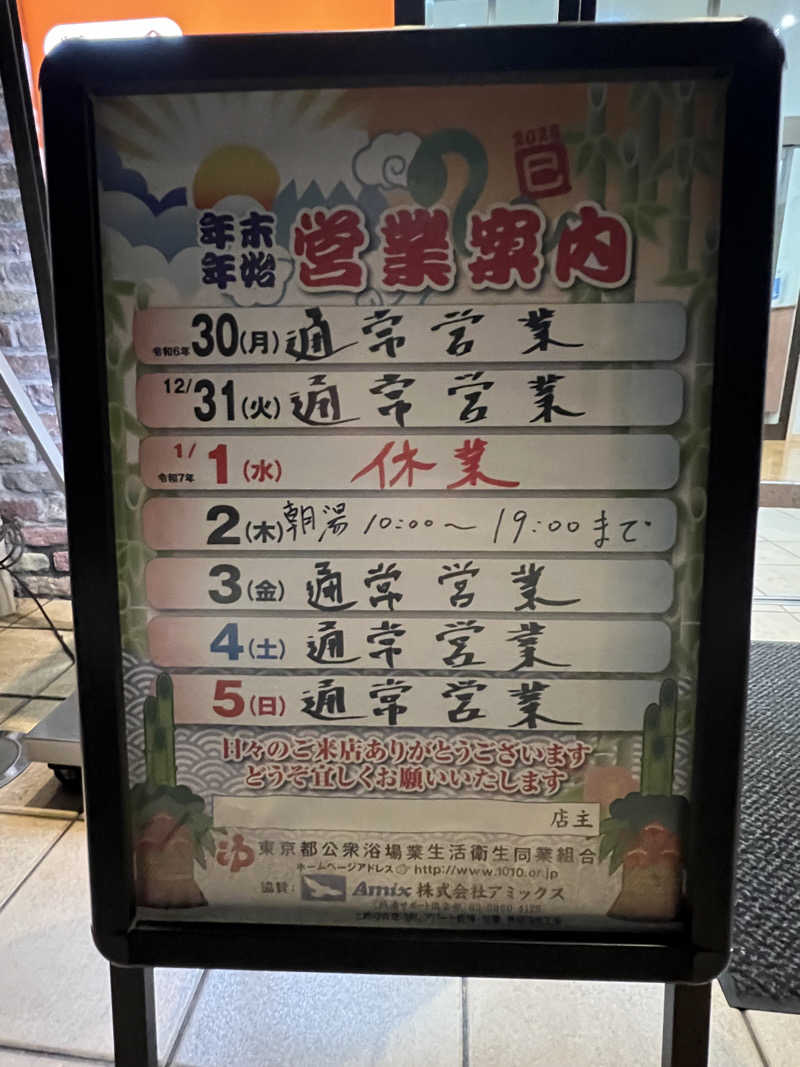 2025
巳
年末
年始
営業案内
令和6年 30(月) 通常営業
12/31(火) 通常営業
1/
令和7年 1(水) 休業
2(木) 朝湯 10:00～19:00まで
3(金) 通常営業
4(土) 通常営業
5(日) 通常営業
日々のご来店ありがとうございます
どうぞ宜しくお願いいたします
店主
東京都公衆浴場業生活衛生同業組合
ホームページアドレス☞ http://www.1010.or.jp
協賛: Amix 株式会社アミックス